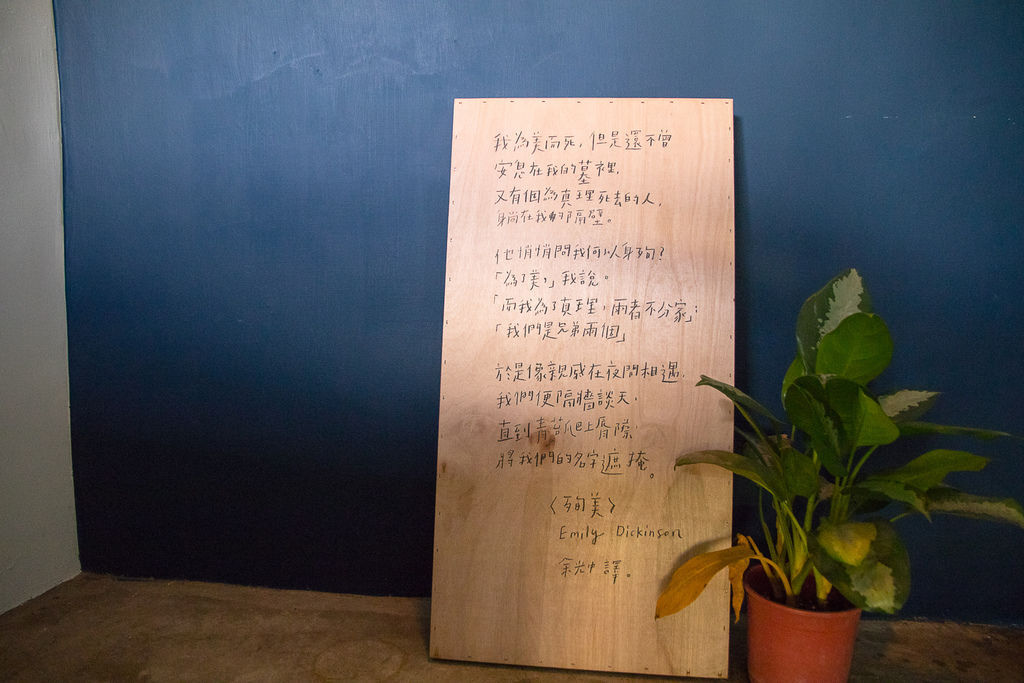 我為美而死，但是還不曾
安息在我的墓裡，
又有個為真理死去的人，
躺在我的隔壁。
他悄悄問我何以身殉？
「為了美，」我說。
「而我為了真理，兩者不分家；
「我們是兄弟兩個」
於是像親戚在夜間相遇，
我們便隔牆談天，
直到青苔爬上唇際，
將我們的名字遮掩。
〈殉美〉
Emily Dickinson
余光中譯。